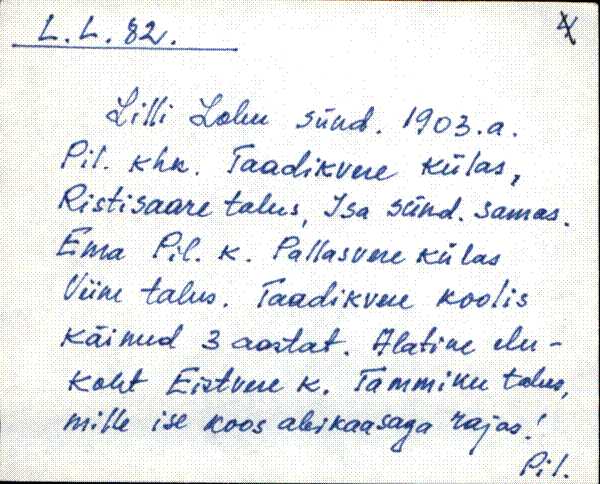 L. L. 82.
4
Lilli Lohu sünd. 1903.a.
Pil. khk. Taadikvere külas,
Ristisaare talus, Isa sünd. samas.
Ema Pil. k. Pallasvere külas
Viine talus. Taadikvere koolis
käinud 3 aastat. Alatine elu-
koht Eistvere k. Tammiku talus,
mille ise koos abikaasaga rajas!
Pil.